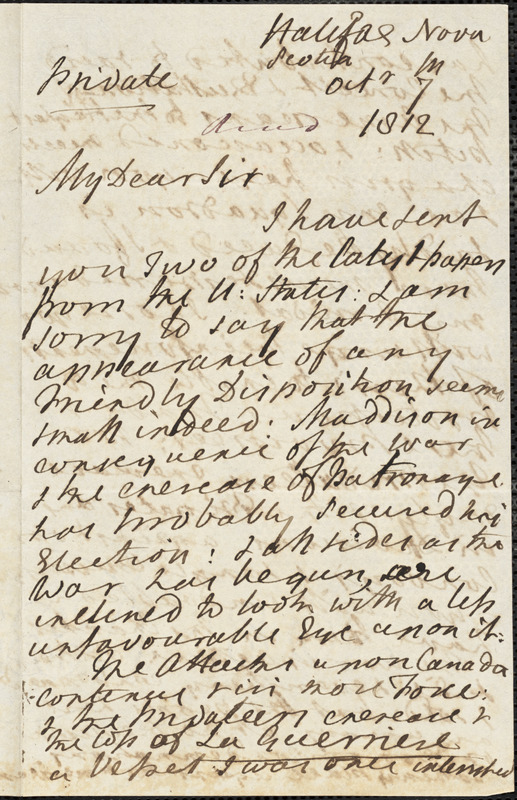 Halifax Nova
Scotia
Private
Octr 7th
1812
My Dear Sir
I have sent
you Two of the latest papers
from the U: States: I am
sorry to say that the
appearance of any
Friendly Disposition seems
small indeed. Maddison in
consequence of the war
& the encrease of Patronage
has Probably Secured his
Election: & all sides as the
War has begun, are
inclined to look with a less
unfavourable Eye upon it:
The Attacks upon Canada
continue with more Force:
& the Privateers encrease &
the loss of La Guerriere
a Vessel I was once interested